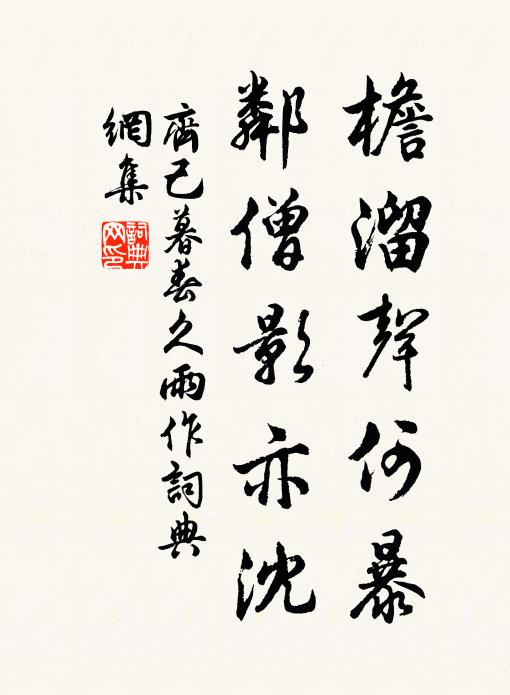 檐溜聲何暴
鄰僧影亦沈
齊己暮春久雨作詞典
網集
詞典
网印